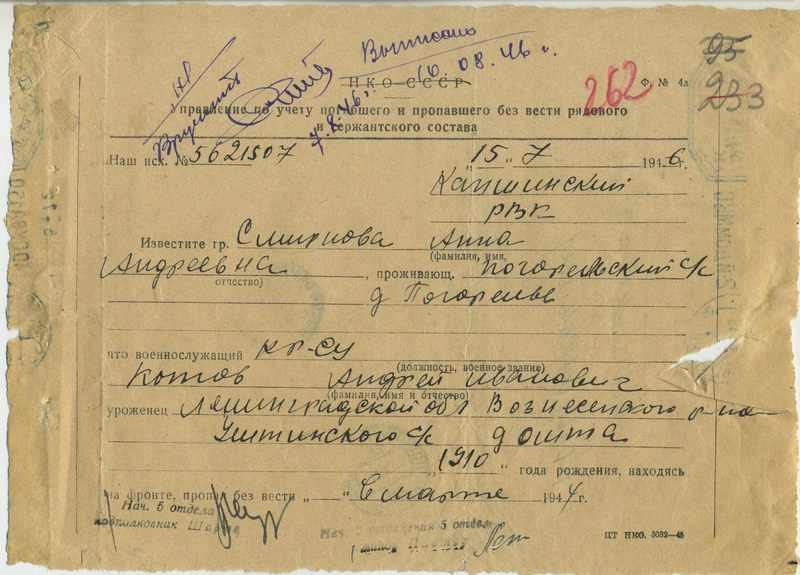 Вручить
Выписано
10.08.46 г.
7.8.46 г.
262
95
233
НКО СССР
Ф. № 4а
Управление по учету погибшего и пропавшего без вести рядового
и сержантского состава
Наш исх. № 5621507 „15" 7 1946 г.
Капшинский
РВК
Известите гр. Смирнова Анна
(фамилия, имя,
Андреевна, проживающ. Погорельский с/с
отчество)
д Погорельв
что военнослужащий кр-су
(должность, военное звание)
Котов Андрей Иванович
(фамилия, имя и отчество)
уроженец Ленинградской обл Вознесенского р-на
с/с д ошта
„1910" года рождения, находясь
на фронте, пропал без вести „ " в марте 1944 г.
Нач. 5 отдела
подполковник
Нач. 2 отделения 5 отдела
майор
ЦТ НКО. 3032—45